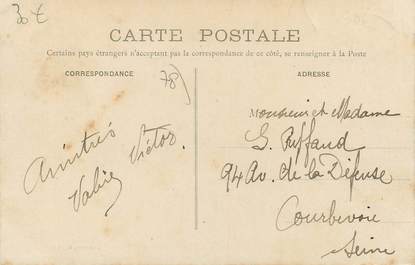 30 €
CARTE POSTALE
Certains pays étrangers n'acceptant pas la correspondance de ce côté, se renseigner à la Poste.
CORRESPONDANCE
78)
Amitiés
Victor.
ADRESSE
Monsieur et Madame
94 Av. de la Défense
Courbevoie
Seine